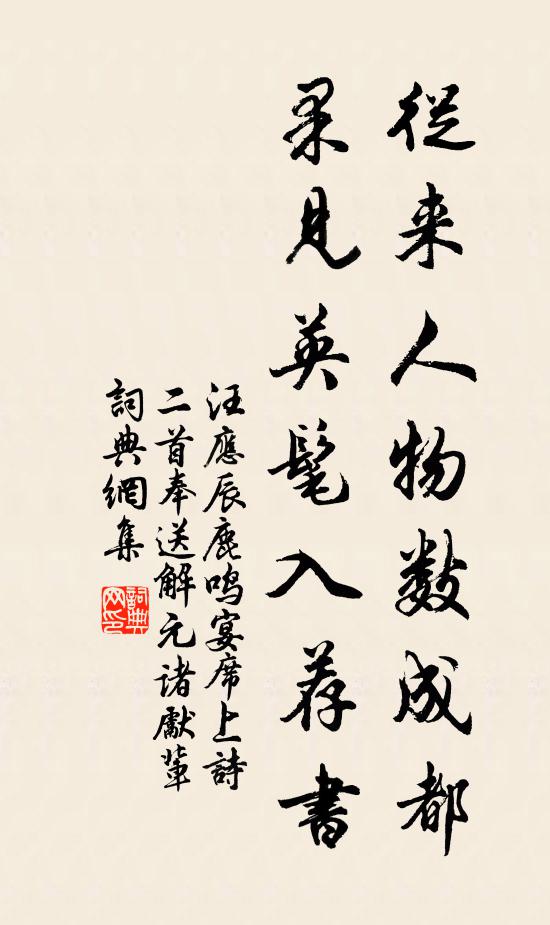 從来人物数成都
果見英髦入荐書
汪應辰鹿鸣宴席上詩
二首奉送解元諸獻輩
詞典網集
詞典
网印